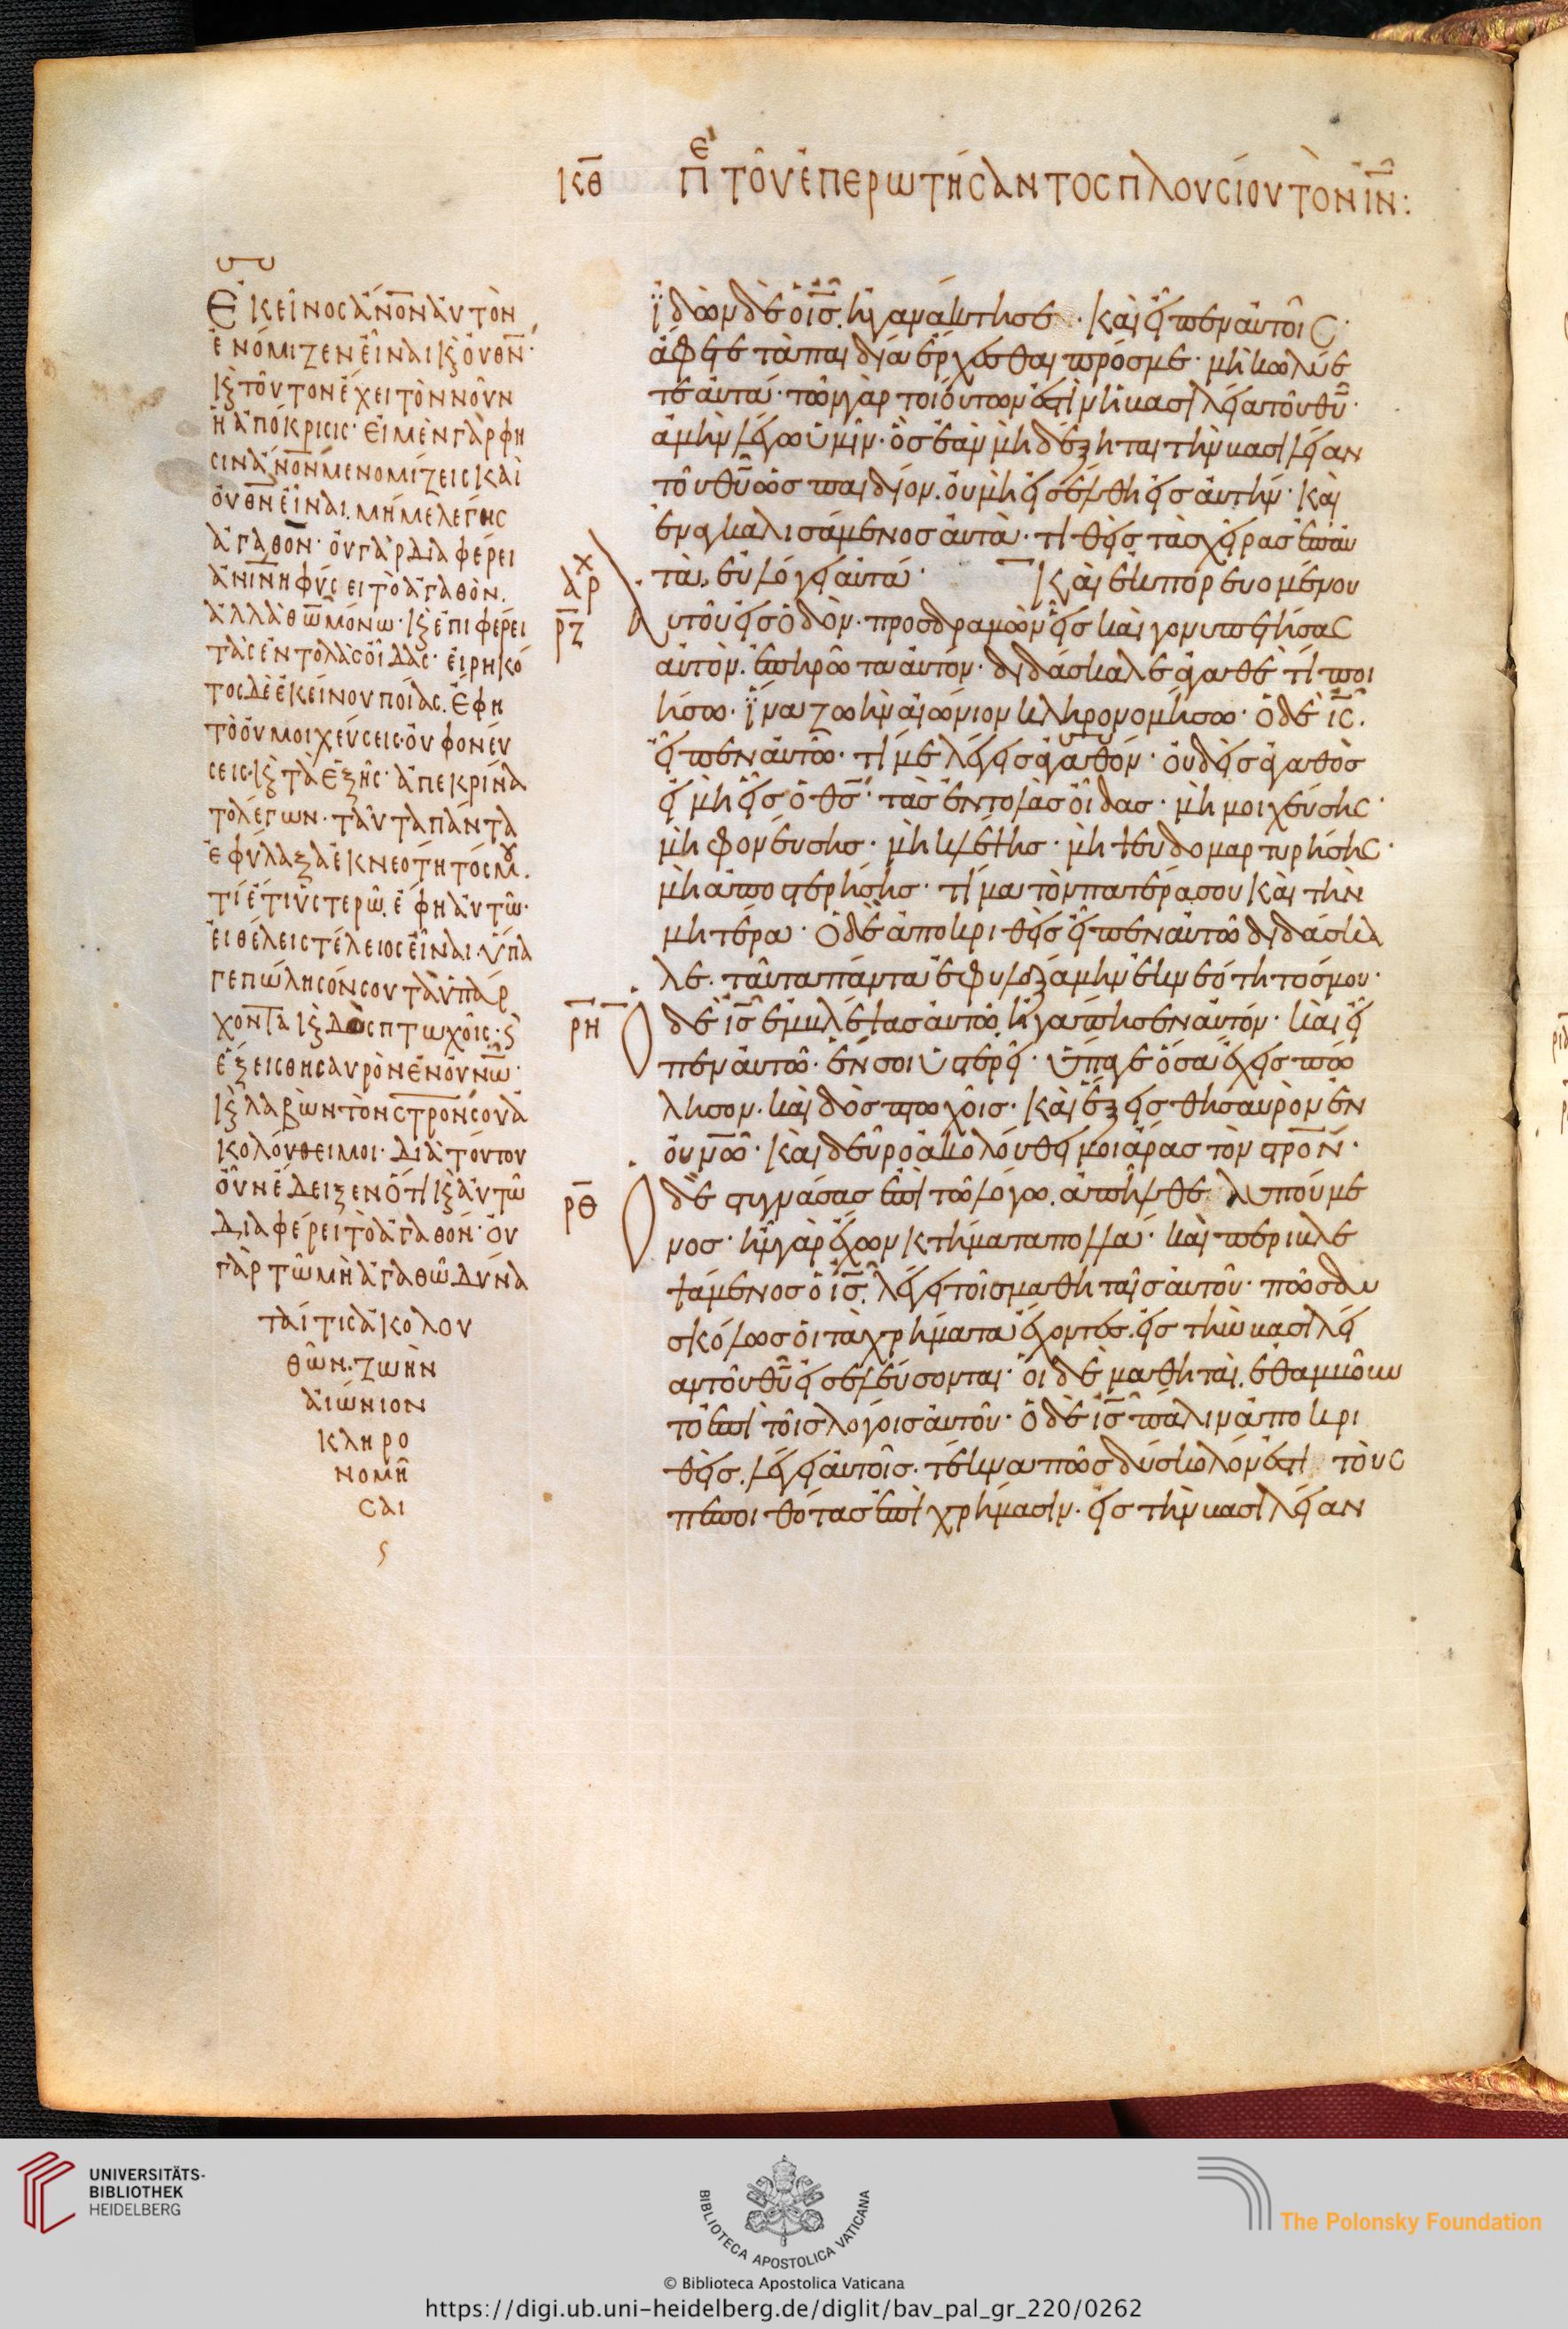 κθ πε τοῦ ἐπερωτήσαντος πλουσίου τὸν ιν:
Ἐκεῖνος ἄνον ἀυτὸν
ἐνόμιζεν εἶναι κ ὀυ θν·
κ τοῦτον ἔχει τὸν νοῦν
ἡ ἀπόκρισις· εἰ μὲν γάρ φη
σιν ἄνον με νομίζεις καὶ
ὀυ θν εἶναι. μή με λέγης
ἀγαθόν· ὀυ γὰρ διαφέρει
ἀνινη φύσει τὸ ἀγαθὸν.
ἀλλὰ θω μόνω· κ ἐπιφέρει
τὰς ἐντολὰς οἶδας· εἰρηκό
τος δὲ ἐκείνου ποίας. ἔφη
τὸ ὀυ μοιχεύσεις· ὀυ φονεύ
σεις· κ τὰ ἑξῆς· ἀπεκρίνα
το λέγων· ταῦτα πάντα
ἐφύλαξα ἐκ νεότητός μου.
τί ἔτι ὑστερῶ. ἔφη ἀυτῶ·
εἰ θέλεις τέλειος εἶναι. ὕπα
γε πώλησόν σου τὰ ὑπάρ
χοντα κ δὸς πτωχοῖς· κ
ἕξεις θησαυρὸν ἐν ὀυνω·
κ λαβὼν τὸν στρον σου ἀ
κολούθει μοι· διὰ τούτου
οὖν ἔδειξεν ὅτι κ ἀυτῶ
διαφέρει τὸ ἀγαθόν· ὀυ
γὰρ τῶ μὴ ἀγαθῶ δύνα
ταί τις ἀκολου
θῶν· ζωὴν
ἀιώνιον
κληρο
νομῆ
σαι
ἰδὼν δὲ ὁ ις. ἠγανάκτησε· καὶ εἶπεν ἀυτοῖς·
ἄφετε τὰ παιδία ἔρχεσθαι πρός με· μὴ κωλύε
τε ἀυτά· τῶν γὰρ τοιούτων ἐστὶν ἡ βασιλεία τοῦ θυ·
ἀμὴν λέγω ὑμῖν· ὃς ἐὰν μὴ δέξηται τὴν βασιλείαν
τοῦ θυ ὡς παιδίον. ὀυ μὴ εἰσέλθη εἰς ἀυτήν· καὶ
ἐναγκαλισάμενος ἀυτὰ· τιθεὶς τὰς χεῖρας ἐπ' ἀυ
τὰ. ἐυλόγει ἀυτά· Καὶ ἐκπορευομένου
αρχ
ρζ ἀυτοῦ εἰς ὁδὸν· προσδραμὼν εἷς καὶ γονυπετήσας
ἀυτὸν. ἐπηρώτα ἀυτόν· διδάσκαλε ἀγαθὲ τί ποι
ήσω· ἵνα ζωὴν ἀιώνιον κληρονομήσω· Ὁ δὲ ις.
εἶπεν ἀυτῶ· τί με λέγεις ἀγαθόν· ὀυδεὶς ἀγαθὸς
εἰ μὴ εἷς ὁ θς· τὰς ἐντολὰς οἶδας· μὴ μοιχεύσης·
μὴ φονεύσης· μὴ κλέψης· μὴ ψευδομαρτυρήσης·
μὴ ἀποστερήσης· τίμα τὸν πατέρα σου καὶ τὴν
μητέρα· Ὁ δὲ ἀποκριθεὶς εἶπεν ἀυτῶ διδάσκα
λε. ταῦτα πάντα ἐφυλαξάμην ἐκ νεότητός μου·
ρη Ὁ δὲ ις ἐμβλέψας ἀυτῶ. ἠγάπησεν ἀυτόν· καὶ εἶ
πεν ἀυτῶ· ἕν σοι ὑστερεῖ· ὕπαγε ὅσα ἔχεις πώ
λησον. καὶ δὸς πτωχοῖς· καὶ ἕξεις θησαυρὸν ἐν
ὀυνω· καὶ δεῦρο ἀκολούθει μοι ἄρας τὸν στρον·
ρθ Ὁ δὲ στυγνάσας ἐπὶ τῶ λόγω. ἀπῆλθε λυπούμε
νος· ἦν γὰρ ἔχων κτήματα πολλά· καὶ περιβλε
ψάμενος ὁ ις. λέγει τοῖς μαθηταῖς ἀυτοῦ· πῶς δυ
σκόλως οἱ τὰ χρήματα ἔχοντες. εἰς τὴν βασιλεί
αν τοῦ θυ εἰσελεύσονται· οἱ δὲ μαθηταὶ. ἐθαμβοῦν
το ἐπὶ τοῖς λόγοις ἀυτοῦ· Ὁ δὲ ις πάλιν ἀποκρι
θεὶς. λέγει ἀυτοῖς· τέκνα πῶς δύσκολόν ἐστι τοὺς
πεποιθότας ἐπὶ χρήμασιν· εἰς τὴν βασιλείαν
UNIVERSITÄTS-
BIBLIOTHEK
HEIDELBERG
BIBLIOTECA APOSTOLICA VATICANA
The Polonsky Foundation
© Biblioteca Apostolica Vaticana
https://digi.ub.uni-heidelberg.de/diglit/bav_pal_gr_220/0262